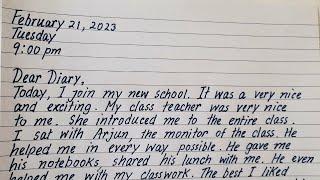 February 21, 2023
Tuesday
9:00 pm
Dear Diary,
Today, I join my new school. It was a very nice
and exciting. My class teacher was very nice
to me. She introduced me to the entire class.
I sat with Arjun, the monitor of the class. He
helped me in every way possible. He gave me
his notebooks, shared his lunch with me. He even
helped me with my classwork. The best I liked